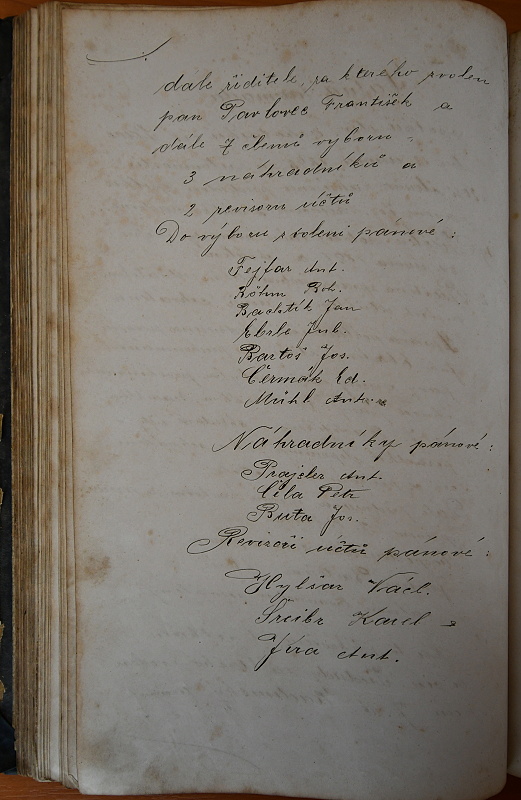 dale řiditele, za kterého zvolen
pan Pavlovec František a
dále 7 členů vyboru,
3 náhradníků a
2 revisoru účtů
Do výboru zvoleni pánové:
Fejfar Ant.
Böhm Rob.
Bachtík Jan
Eberle Jul.
Bartoš Jos.
Čermák Ed.
Mühl Ant.
Náhradníky pánové:
Prajsler Ant.
Cěla Petr
Buťa Jos.
Revizoři účtů pánové:
Hylšar Václ.
Šreibr Karel
Jíra Ant.